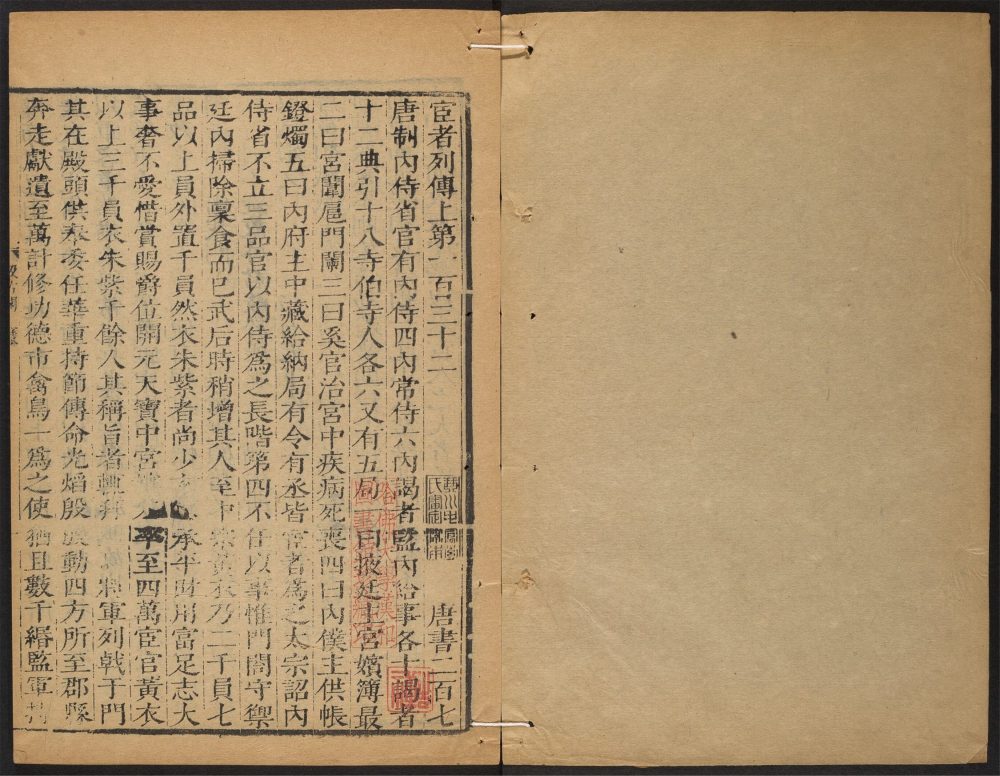 宦者列傳上第一百三十二 唐書二百七
唐制內侍省官有內侍四內常侍六內謁者監內給事各十謁者
十二典引十八寺伯寺人各六又有五局一曰掖廷主宮嬪簿最
二曰宮闈扈門闌三曰奚官治宮中疾病死喪四曰內僕主供帳
鐙燭五曰內府主中藏給納局有令有丞皆宦者為之太宗詔內
侍省不立三品官以內侍為之長階第四不任以事惟門閤守禦
廷內掃除稟食而已武后時稍增其人至中宗黃衣乃二千員七
品以上員外置千員然衣朱紫者尚少 承平財用富足志大
事奢不愛惜賞賜爵位開元天寶中宮 率至四萬宦官黃衣
以上三千員衣朱紫千餘人其稱旨者輒拜 將軍列戟于門
其在殿頭供奉委任華重持節傳命光焰殷殷動四方所至郡縣
奔走獻遺至萬計修功德市禽鳥一為之使猶且數千緡監軍持